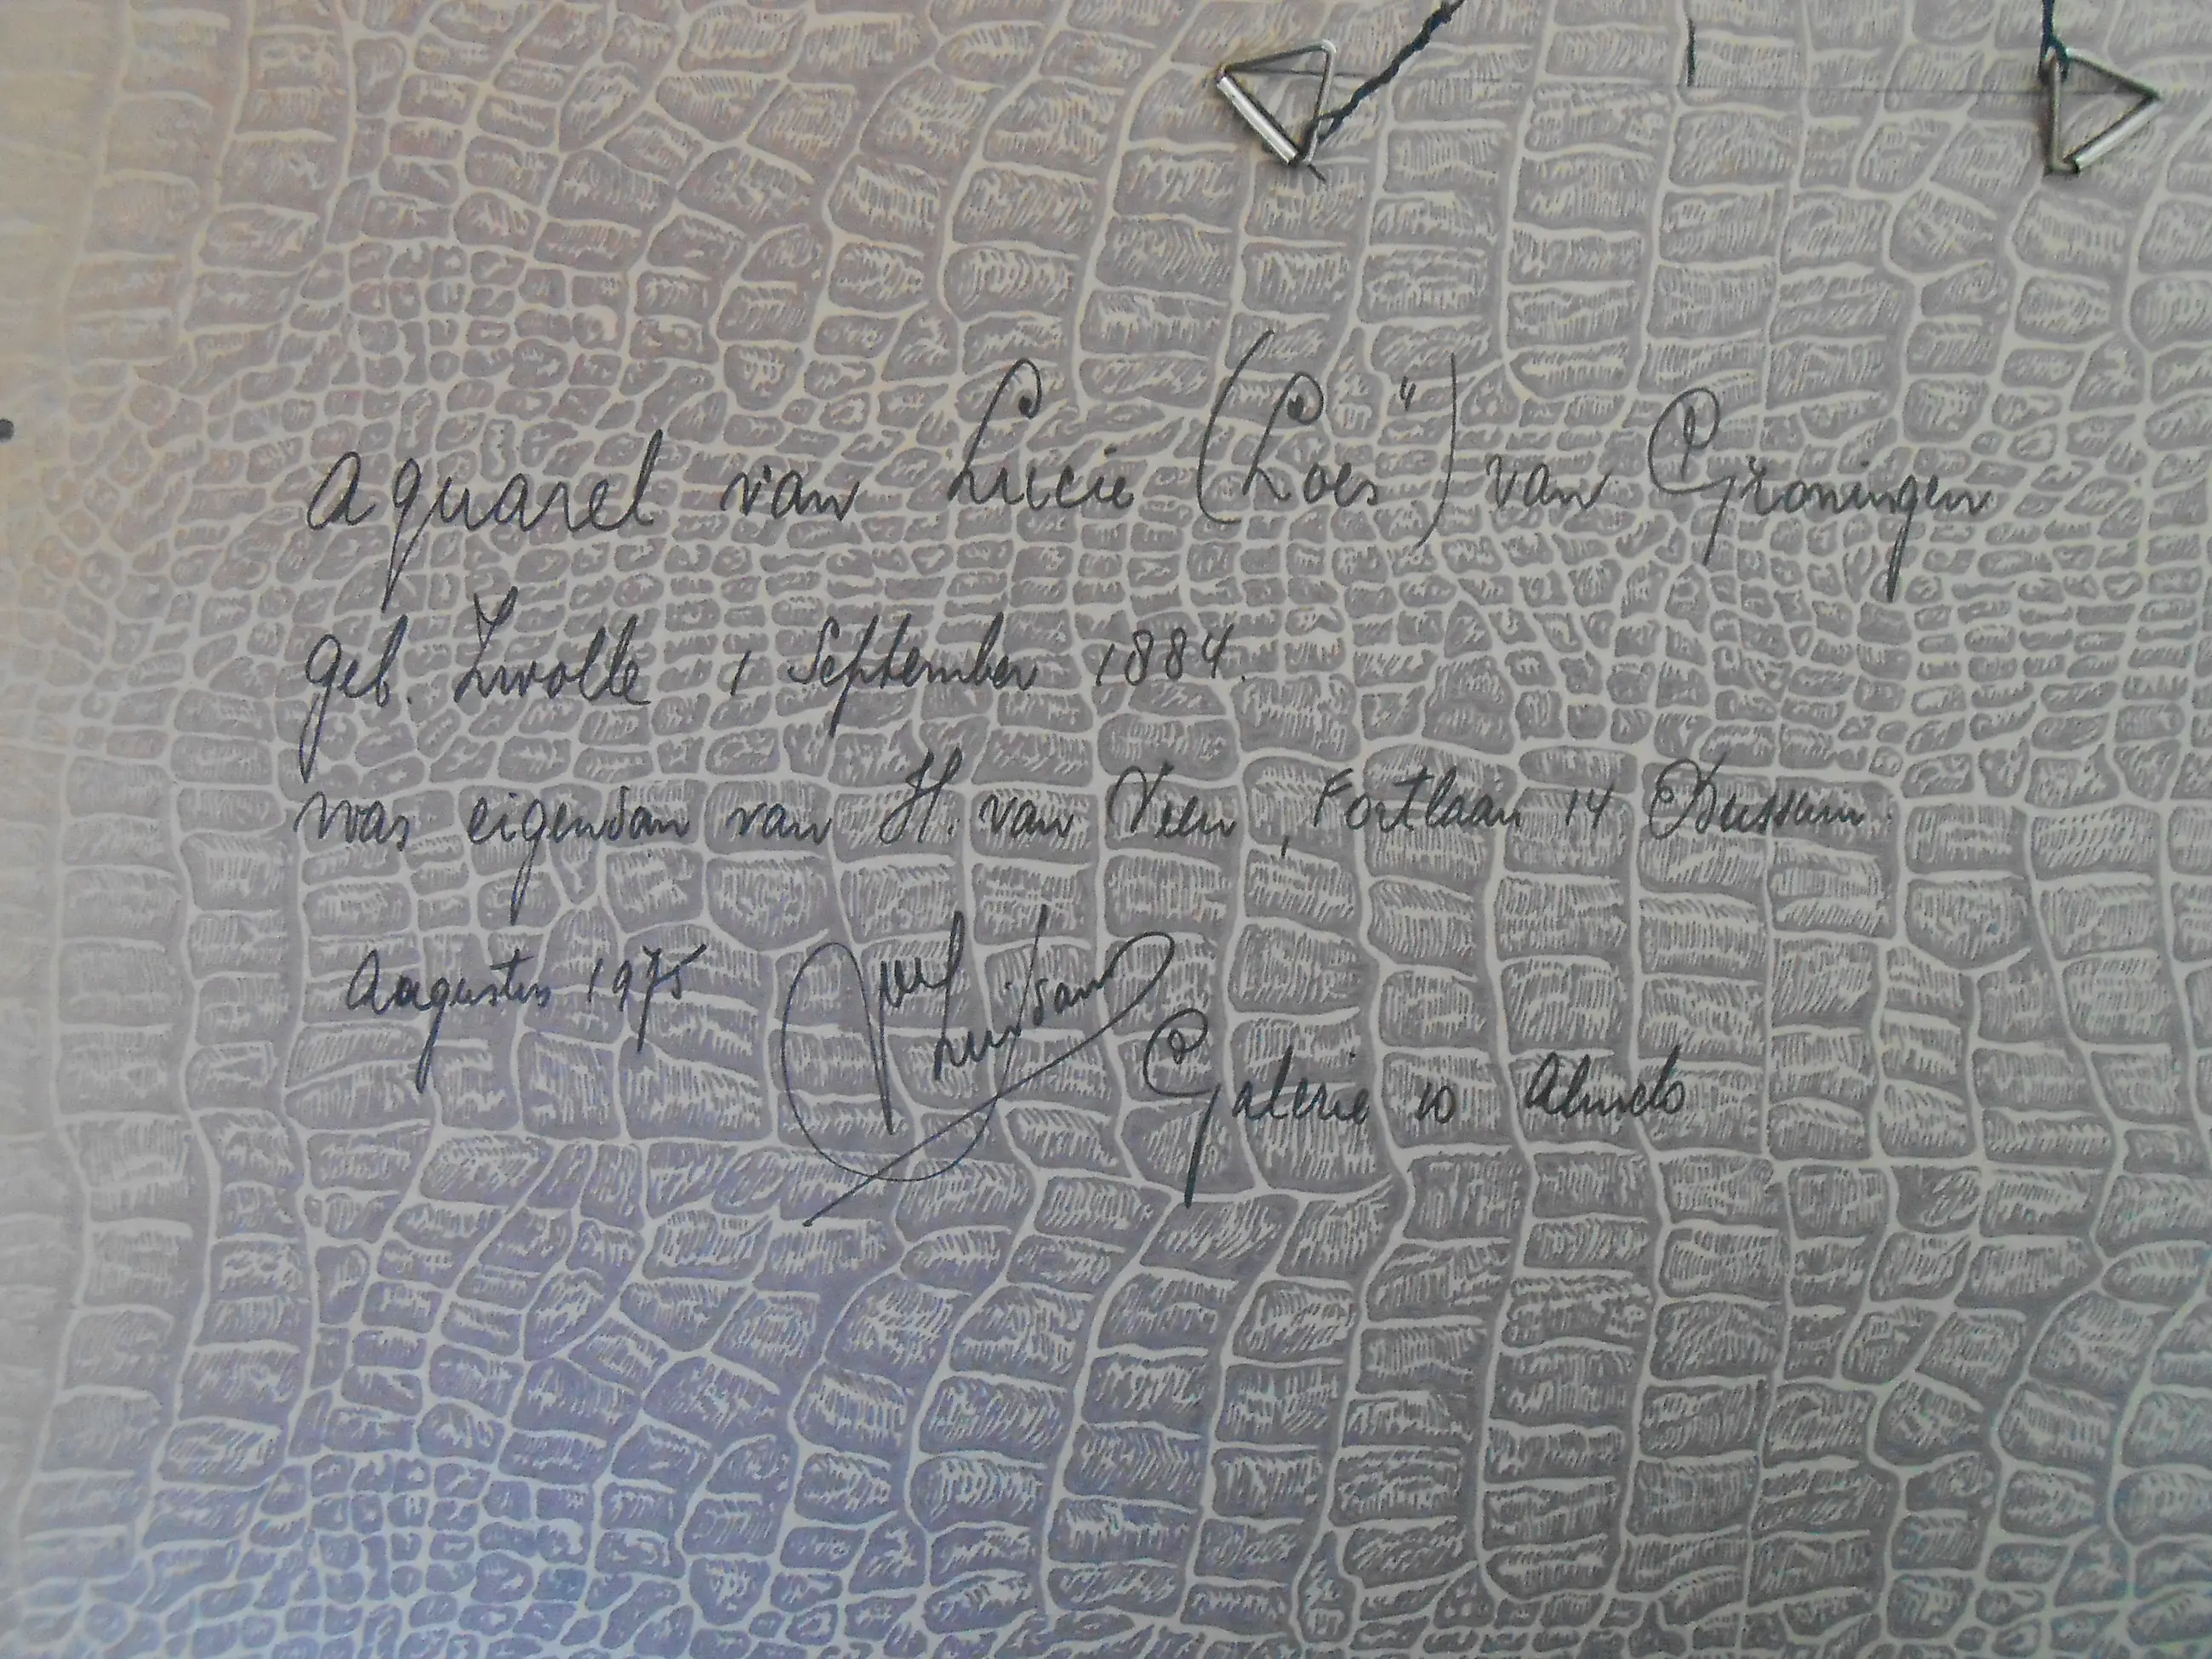 Aquarel van Lucie (Loes") van Groningen
geb. Zwolle 1 September 1884.
was eigendom van H. van Veen, Fortlaan 14 Bussum.
Augustus 1975
Galerie 10 Almelo